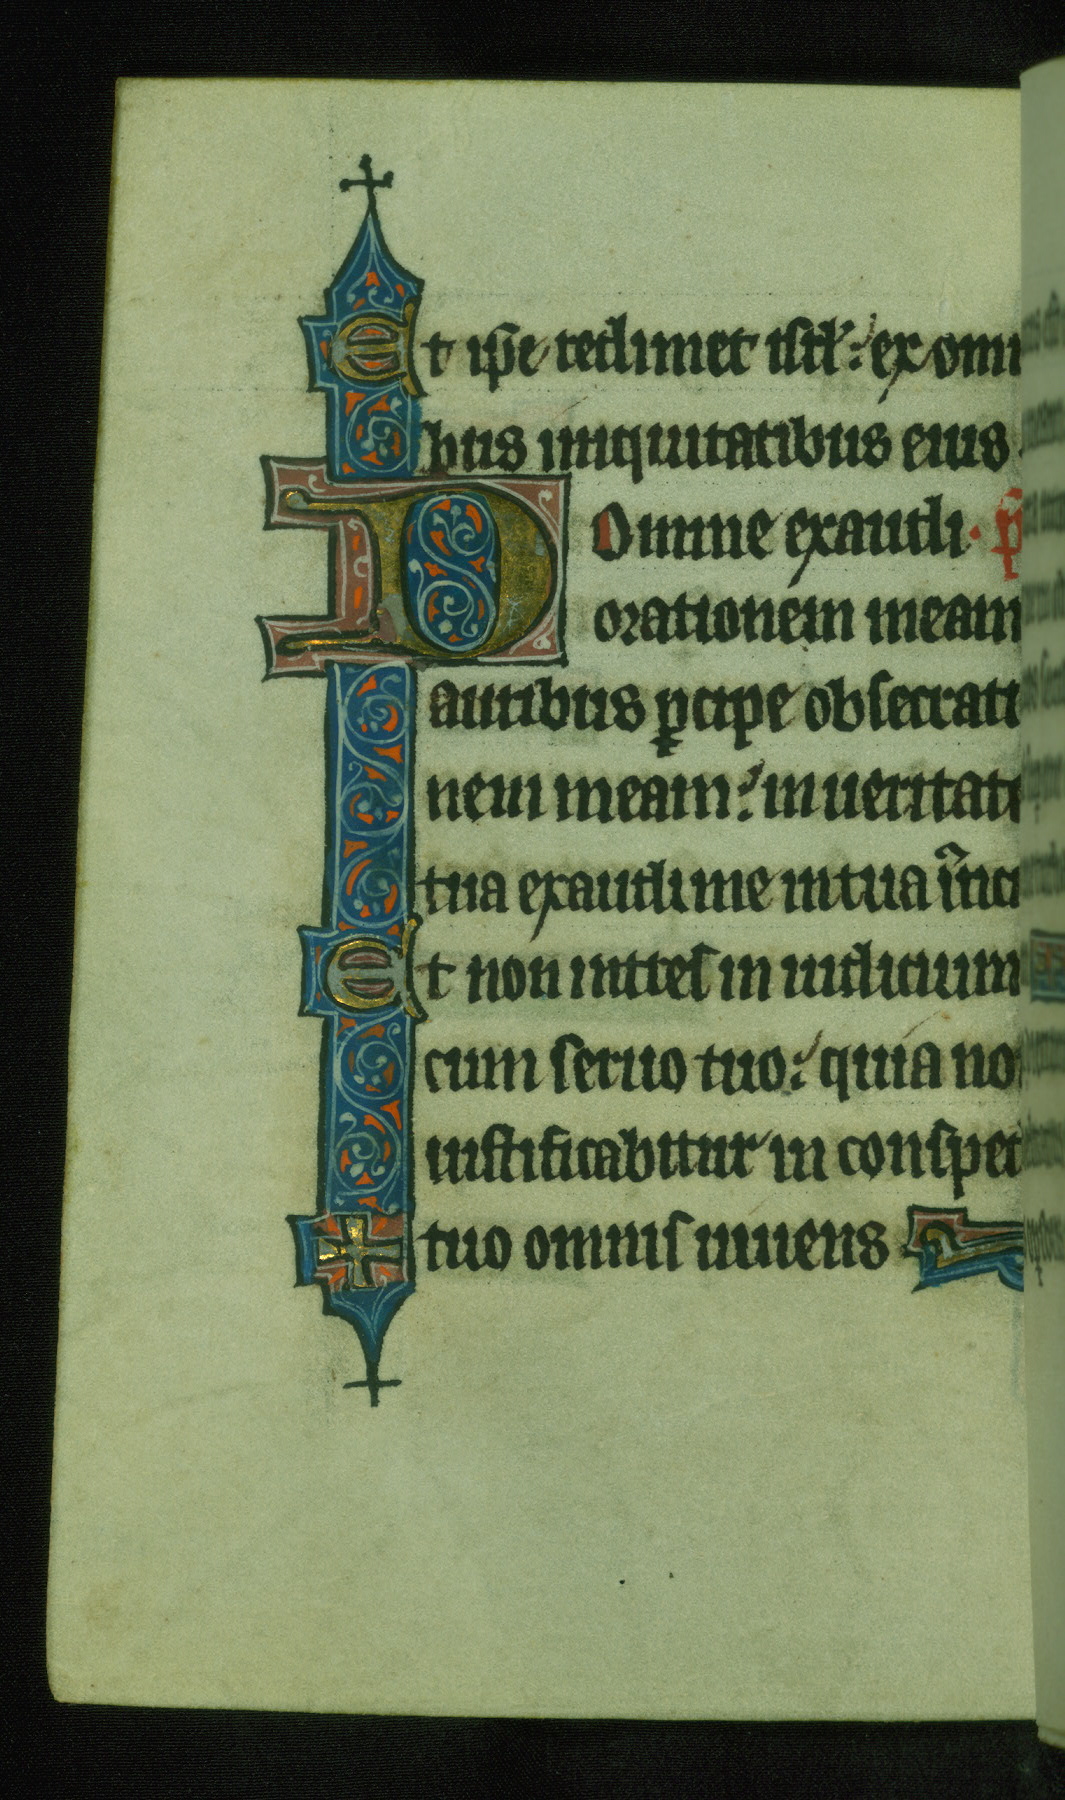 Et ip̄e redimet isrl̄: ex omni
bus iniquitatibus eius
Domine exaudi. p̄
orationem meam
auribus ꝑcipe obsecrati
nem meam: in ueritate
tua exaudi me in tua
Et non intres in iudicium
cum seruo tuo: quia no
iustificabitur in conspec
tuo omnis uiuens